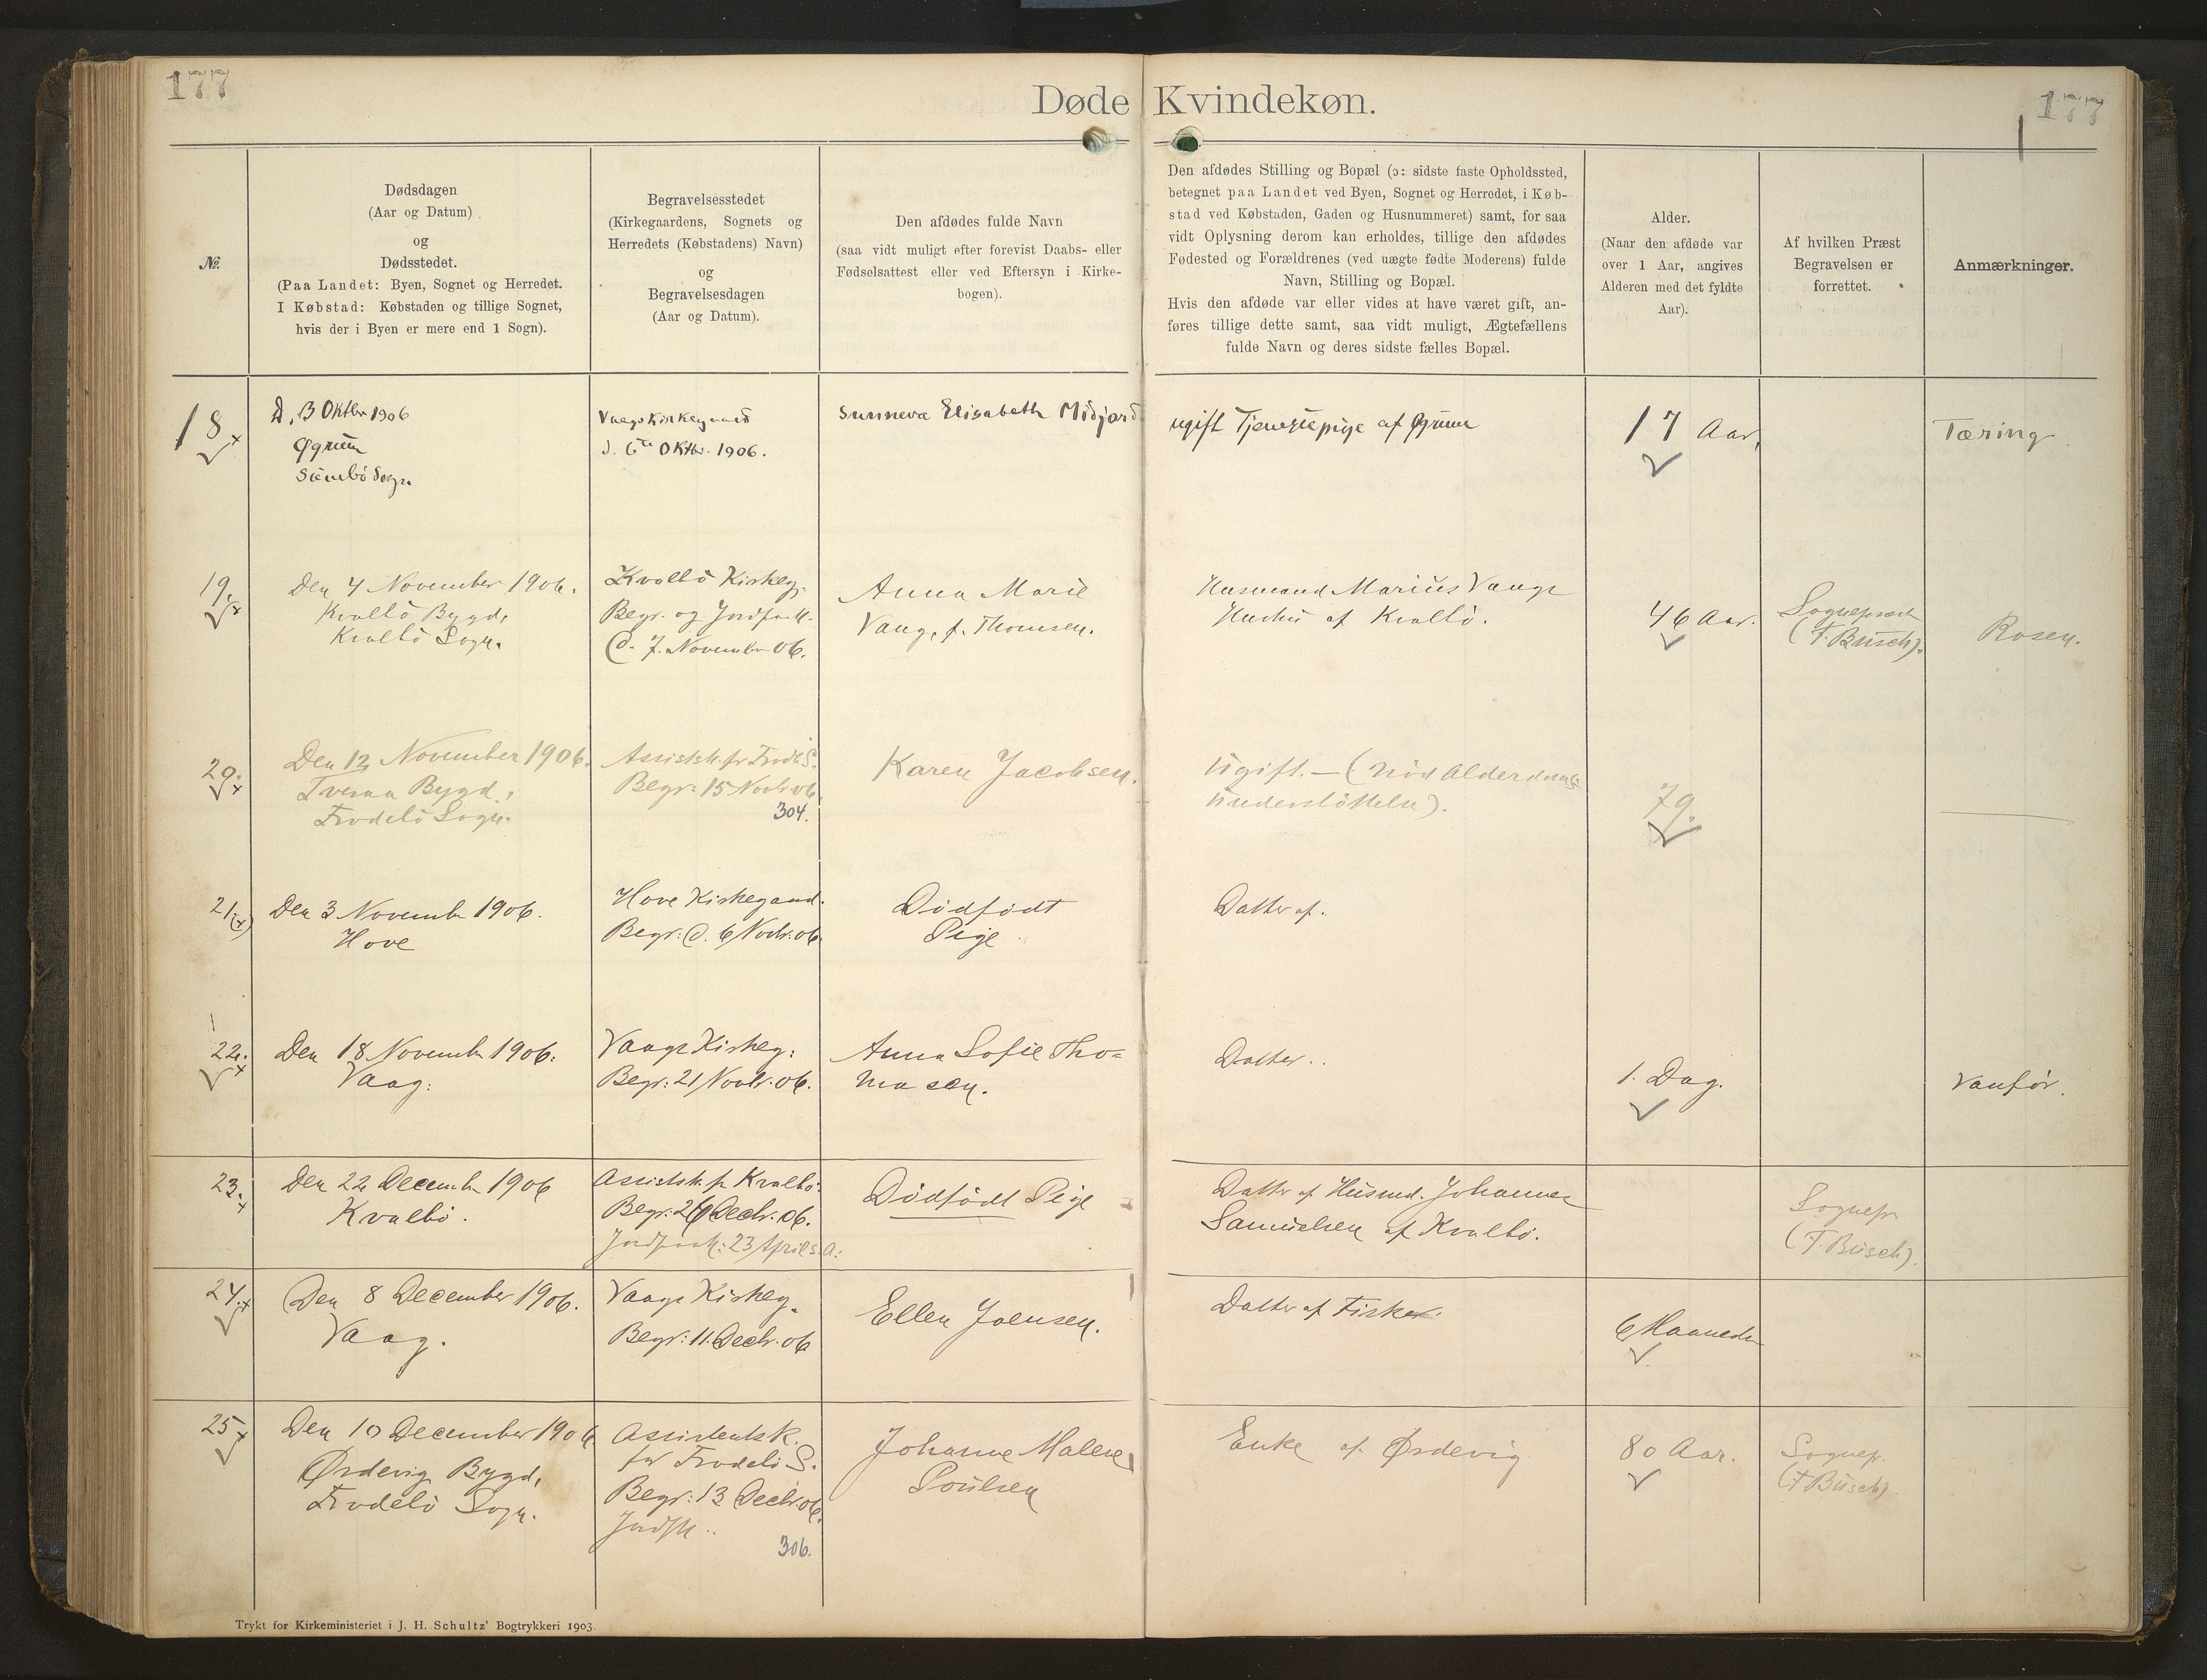 177
177
Døde Kvindekøn.
№
Dødsdagen
(Aar og Datum)
og
Dødsstedet.
(Paa Landet: Byen, Sognet og Herredet.
I Købstad: Købstaden og tillige Sognet,
hvis der i Byen er mere end 1 Sogn).
Begravelsesstedet
(Kirkegaardens, Sognets og
Herredets (Købstadens) Navn)
og
Begravelsesdagen
(Aar og Datum).
Den afdødes fulde Navn
(saa vidt muligt efter forevist Daabs- eller
Fødselsattest eller ved Eftersyn i Kirke-
bogen).
Den afdødes Stilling og Bopæl (ɔ: sidste faste Opholdssted,
betegnet paa Landet ved Byen, Sognet og Herredet, i Køb-
stad ved Købstaden, Gaden og Husnummeret) samt, for saa
vidt Oplysning derom kan erholdes, tillige den afdødes
Fødested og Forældrenes (ved uægte fødte Moderens) fulde
Navn, Stilling og Bopæl.
Hvis den afdøde var eller vides at have været gift, an-
føres tillige dette samt, saa vidt muligt, Ægtefællens
fulde Navn og deres sidste fælles Bopæl.
Alder.
(Naar den afdøde var
over 1 Aar, angives
Alderen med det fyldte
Aar).
Af hvilken Præst
Begravelsen er
forrettet.
Anmærkninger.
18 x
D. 3 Oktbr 1906
Øgrum
Sumbö Sogn
Vaags Kirkegaard
d. 6te Oktbr. 1906.
Sunneva Elisabeth Midjord
ugift Tjenestepige af Øgrum
17 Aar,
Tæring.
19. x
Den 4 November 1906.
Kvalbö Bygd,
Kvalbö Sogn.
Kvalbö Kirkeg.
Begr. og Jordpaak.
(d. 7. November 06.
Anna Marie
Vang, f. Thomsen.
Husmand Marius Vangs
Hustru af Kvalbö.
46 Aar.
Sognepræst
(F. Busch).
Rosen.
20. x
Den 12 November 1906.
Tveraa Bygd,
Frodebö Sogn.
Assistsk. fr Frodb S.
Begr: 15 Novbr. 06.
304.
Karen Jacobsen.
Ugift. — (nöd Alderdoms
Understöttelse).
79.
21. (x)
Den 3 Novembr 1906.
Hove
Hove Kirkegaard.
Begr: d. 6 Novbr. 06.
Dödfödt
Pige
Datter af.
22. x
Den 18 Novembr 1906.
Vaag.
Vaags Kirkeg:
Begr: 21 Novbr. 06.
Anna Sofie Tho=
masen.
Datter..
1. Dag.
Vanför.
23. x
Den 22 Decembr 1906
Kvalbö.
Assistsk. fr Kvalbö.
Begr: 26 Decbr. 06.
Jordpaak: 23 April s. A:
Dödfödt Pige
Datter af Husmd. Johannes
Samuelsen af Kvalbö.
Sognepr.
(F. Busch).
24. x
Den 8 December 1906.
Vaag.
Vaags Kirkeg.
Begr: 11. Decbr. 06
Ellen Joensen.
Datter af Fisker.
6 Maaneder
25 x
Den 10 December 1906
Ørdevig Bygd,
Frodebö Sogn.
Assistentsk.
for Frodebö S.
Begr: 13 Decbr. 06.
Jordpk..
306.
Johanne Malene
Poulsen
Enke af Ørdevig
80 Aar.
Sognepr.
(F Busch)
Trykt for Kirkeministeriet i J. H. Schultz' Bogtrykkeri 1903.